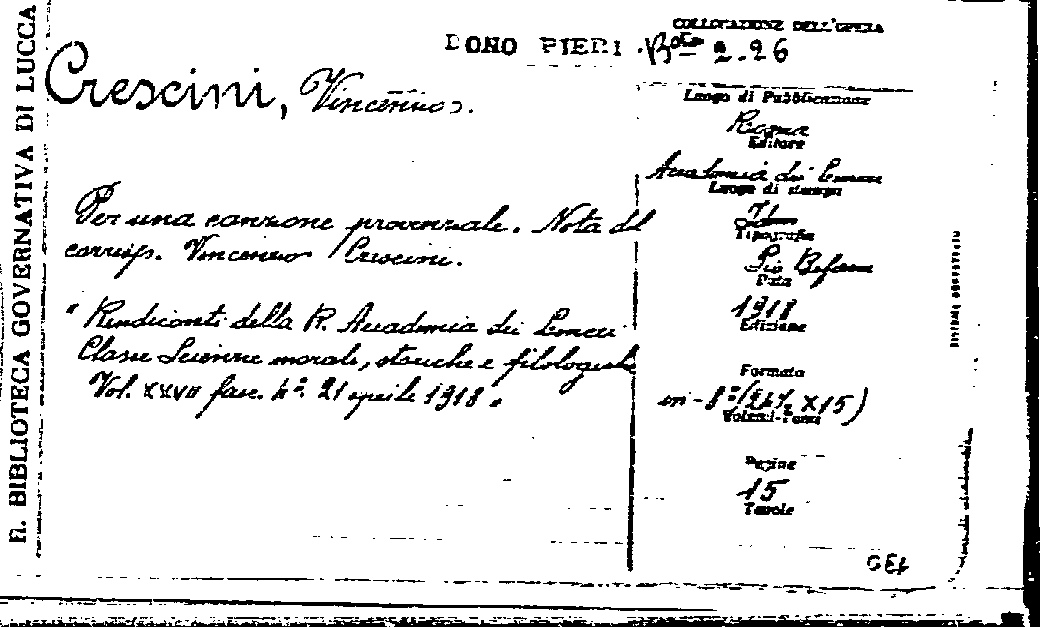 R. BIBLIOTECA GOVERNATIVA DI LUCCA
COLLOCAZIONE DELL'OPERA
DONO PIERI
2.26
Crescini, Vincenzo.
Per una canzone provenzale. Nota del
corrisp. Vincenzo Crescini.
" Rendiconti della R. Accademia dei Lincei
Classe Scienze morali, storiche e filologiche
Vol. XXVII fasc. 4º 21 aprile 1918 "
Luogo di Pubblicazione
Roma
Editore
Accademia dei Lincei
Luogo di stampa
Id
Tipografia
Pio Befani
Data
1918
Edizione
Formato
in-8º (24½ X 15)
Volumi-Tomi
Pagine
15
Tavole